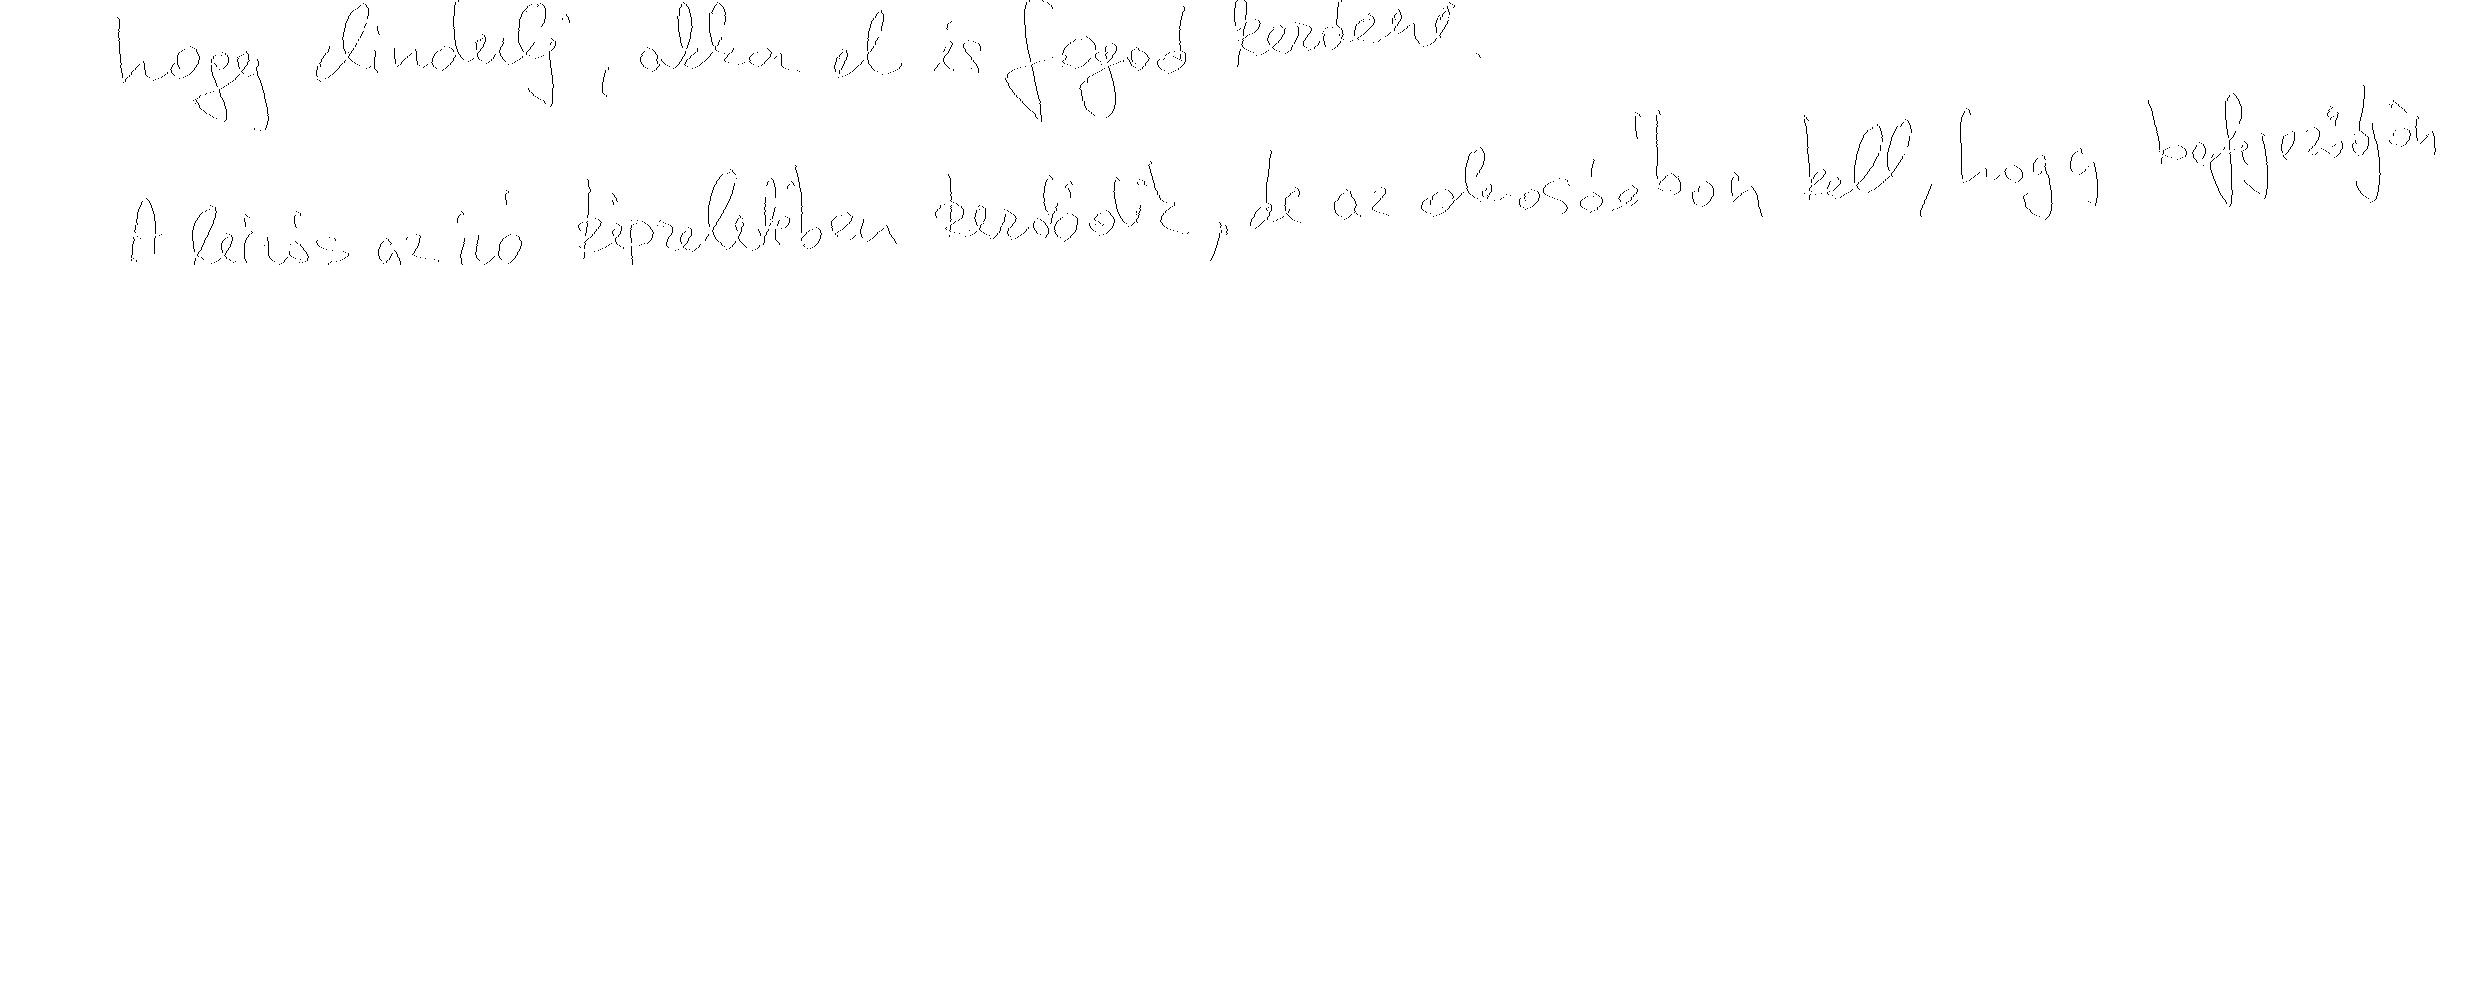 hogy elindulj, akkor el is fogod kezdeni.
A leírás az író képzeletében kezdődik, de az olvasóéban kell, hogy befejeződjön